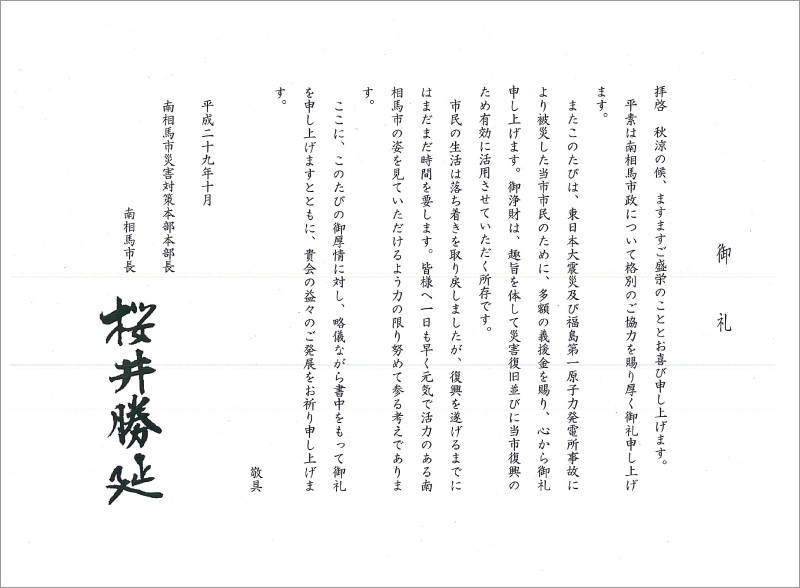 御礼
拝啓　秋涼の候、ますますご盛栄のこととお喜び申し上げます。
平素は南相馬市政について格別のご協力を賜り厚く御礼申し上げ
ます。
またこのたびは、東日本大震災及び福島第一原子力発電所事故に
より被災した当市市民のために、多額の義援金を賜り、心から御礼
申し上げます。御浄財は、趣旨を体して災害復旧並びに当市復興の
ため有効に活用させていただく所存です。
市民の生活は落ち着きを取り戻しましたが、復興を遂げるまでに
はまだまだ時間を要します。皆様へ一日も早く元気で活力のある南
相馬市の姿を見ていただけるよう力の限り努めて参る考えでありま
す。
ここに、このたびの御厚情に対し、略儀ながら書中をもって御礼
を申し上げますとともに、貴会の益々のご発展をお祈り申し上げま
す。
敬具
平成二十九年十月
南相馬市災害対策本部本部長
南相馬市長
桜井勝延